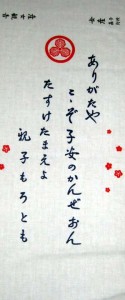 ありがたや
こそ子安のかんぜおん
たすけたまえよ
親子もろとも